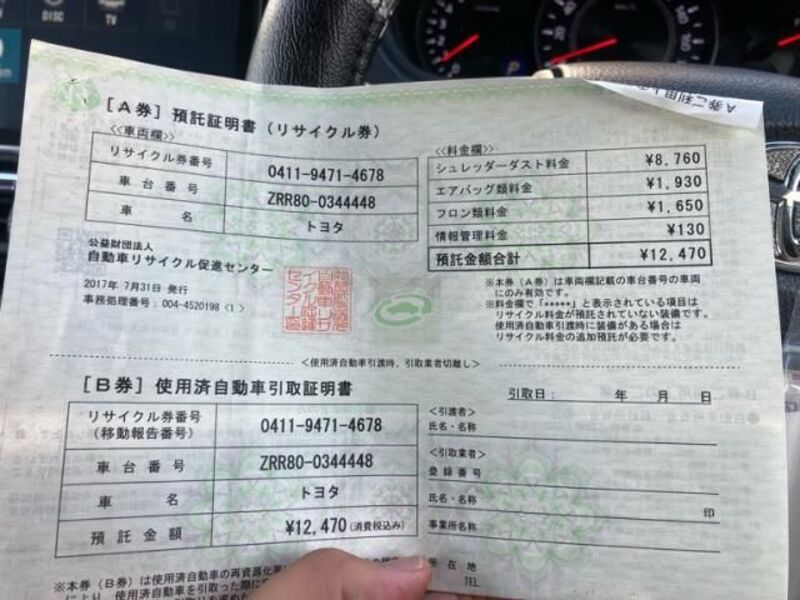 DISC
TV
A券ご利用上の
[A券] 預託証明書 (リサイクル券)
<<車両欄>>
リサイクル券番号 0411-9471-4678
車台番号 ZRR80-0344448
車名 トヨタ
公益財団法人
自動車リサイクル促進センター
2017年 7月31日 発行
事務処理番号：004-4520198 <1>
<<料金欄>>
シュレッダーダスト料金 ¥8,760
エアバッグ類料金 ¥1,930
フロン類料金 ¥1,650
情報管理料金 ¥130
預託金額合計 ¥12,470
※本券（A券）は車両欄記載の車台番号の車両
にのみ有効です。
※料金欄で「*****」と表示されている項目は
リサイクル料金が預託されていない装備です。
使用済自動車引渡時に装備がある場合は
リサイクル料金の追加預託が必要です。
<使用済自動車引渡時、引取業者切離し>
[B券] 使用済自動車引取証明書
リサイクル券番号
(移動報告番号) 0411-9471-4678
車台番号 ZRR80-0344448
車名 トヨタ
預託金額 ¥12,470(消費税込み)
引取日： 年 月 日
<引渡者>
氏名・名称
<引取業者>
登録番号
氏名・名称 印
事業所名称
所在地
TEL
※本券（B券）は使用済自動車の再資源化
により、使用済自動車を引取った際に